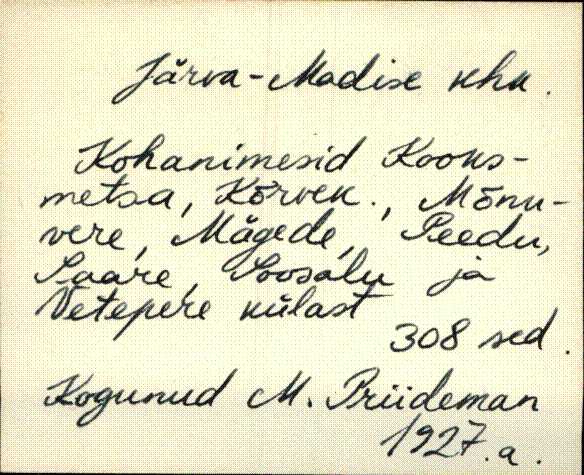 Järva-Madise khk.
Kohanimesid Kooks-
metsa, Kõrvek., Mõnu-
vere, Mägede, Peedu,
Saare, Soosalu ja
Vetepere külast
308 sed.
Kogunud M. Priideman
1927.a.